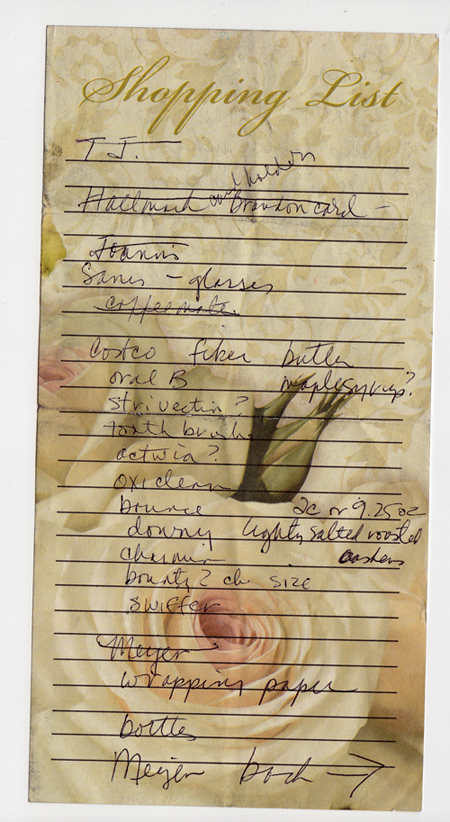 Shopping List
T J.
card holders
Hallmark Brandon card -
Joann's
Sams - glasses
coffeemate
Costco fiber butter
oral B maple syrup?
strivectin?
tooth brush
activia?
oxiclean
bounce 2c or 9.25 oz
downy lightly salted roasted
charmin cashews
bounty? ck size
swiffer
Meijer
wrapping paper
bottles
Meijer back →